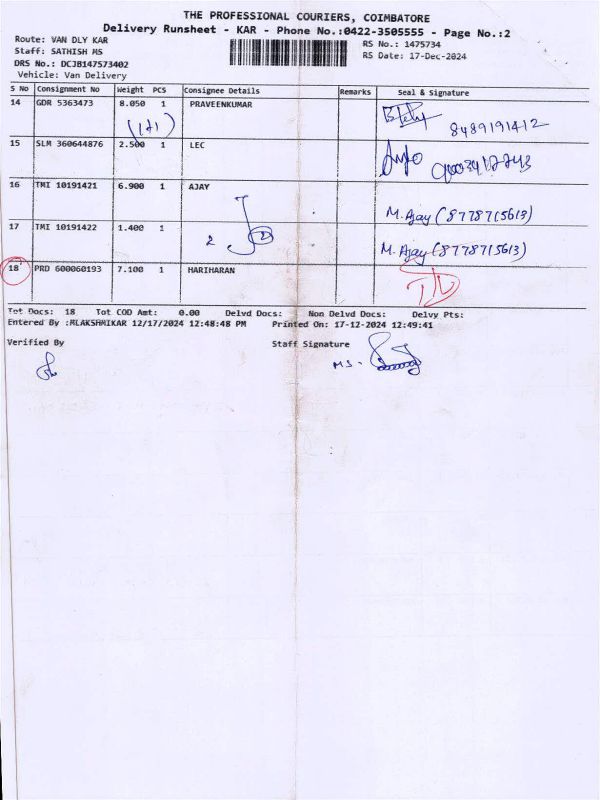 THE PROFESSIONAL COURIERS, COIMBATORE
Delivery Runsheet - KAR - Phone No.:0422-3505555 - Page No.:2
Route: VAN DLY KAR
RS No.: 1475734
Staff: SATHISH MS
RS Date: 17-Dec-2024
DRS No.: DCJB147573402
Vehicle: Van Delivery
S No Consignment No Weight PCS Consignee Details Remarks Seal & Signature
14 GDR 5363473 8.050 1 PRAVEENKUMAR
(1+1) 8489191412
15 SLM 360644876 2.500 1 LEC
16 TMI 10191421 6.900 1 AJAY
M. Ajay (8778715613)
17 TMI 10191422 1.400 1
2 2 M. Ajay (8778715613)
18 PRD 600060193 7.100 1 HARIHARAN
Tot Docs: 18 Tot COD Amt: 0.00 Delvd Docs: Non Delvd Docs: Delvy Pts:
Entered By :MLAKSHMIKAR 12/17/2024 12:48:48 PM Printed On: 17-12-2024 12:49:41
Verified By Staff Signature
MS.